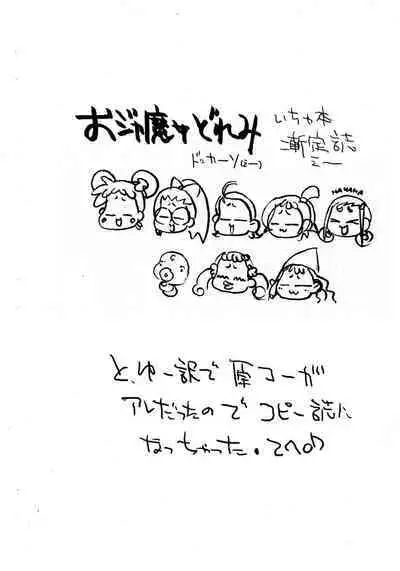 おジャ魔女どれみ
いちゃ本
漸定誌
ミー
ドッカーン(ミー)
HANAKA
と、ゆー訳で 原コーが
アレだったので コピー誌に
なっちゃった。てへ♪